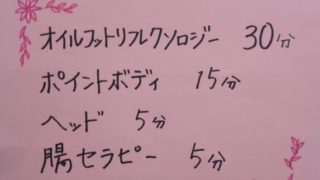 オイルフットリフレクソロジー 30分
ポイントボディ 15分
ヘッド 5分
腸セラピー 5分